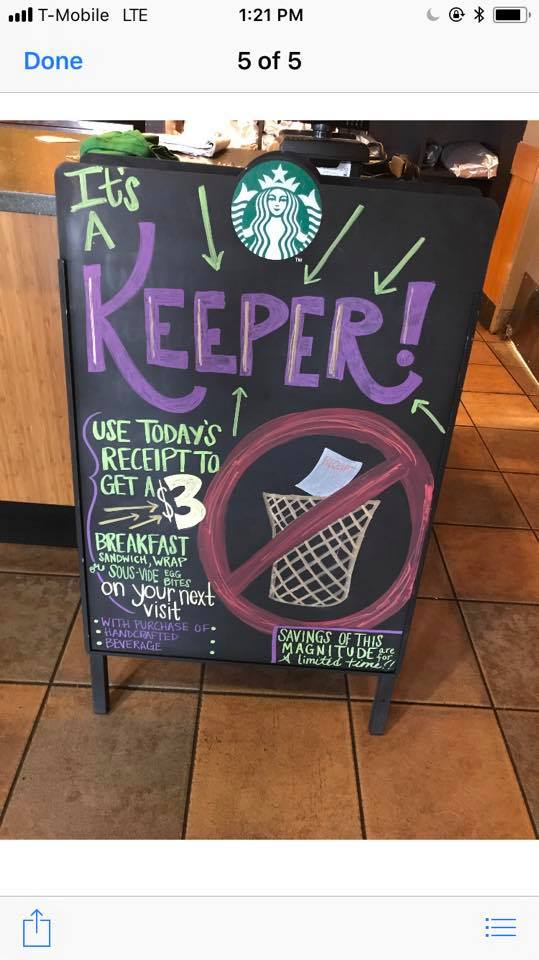 T-Mobile LTE 1:21 PM
Done 5 of 5
It's
A
KEEPER!
USE TODAY'S
RECEIPT TO
GET A $3
BREAKFAST
SANDWICH, WRAP
or SOUS-VIDE EGG BITES
on your next
visit
• WITH PURCHASE OF •
• HANDCRAFTED •
• BEVERAGE •
RECEIPT
SAVINGS OF THIS
MAGNITUDE are for
A limited time!!
TM